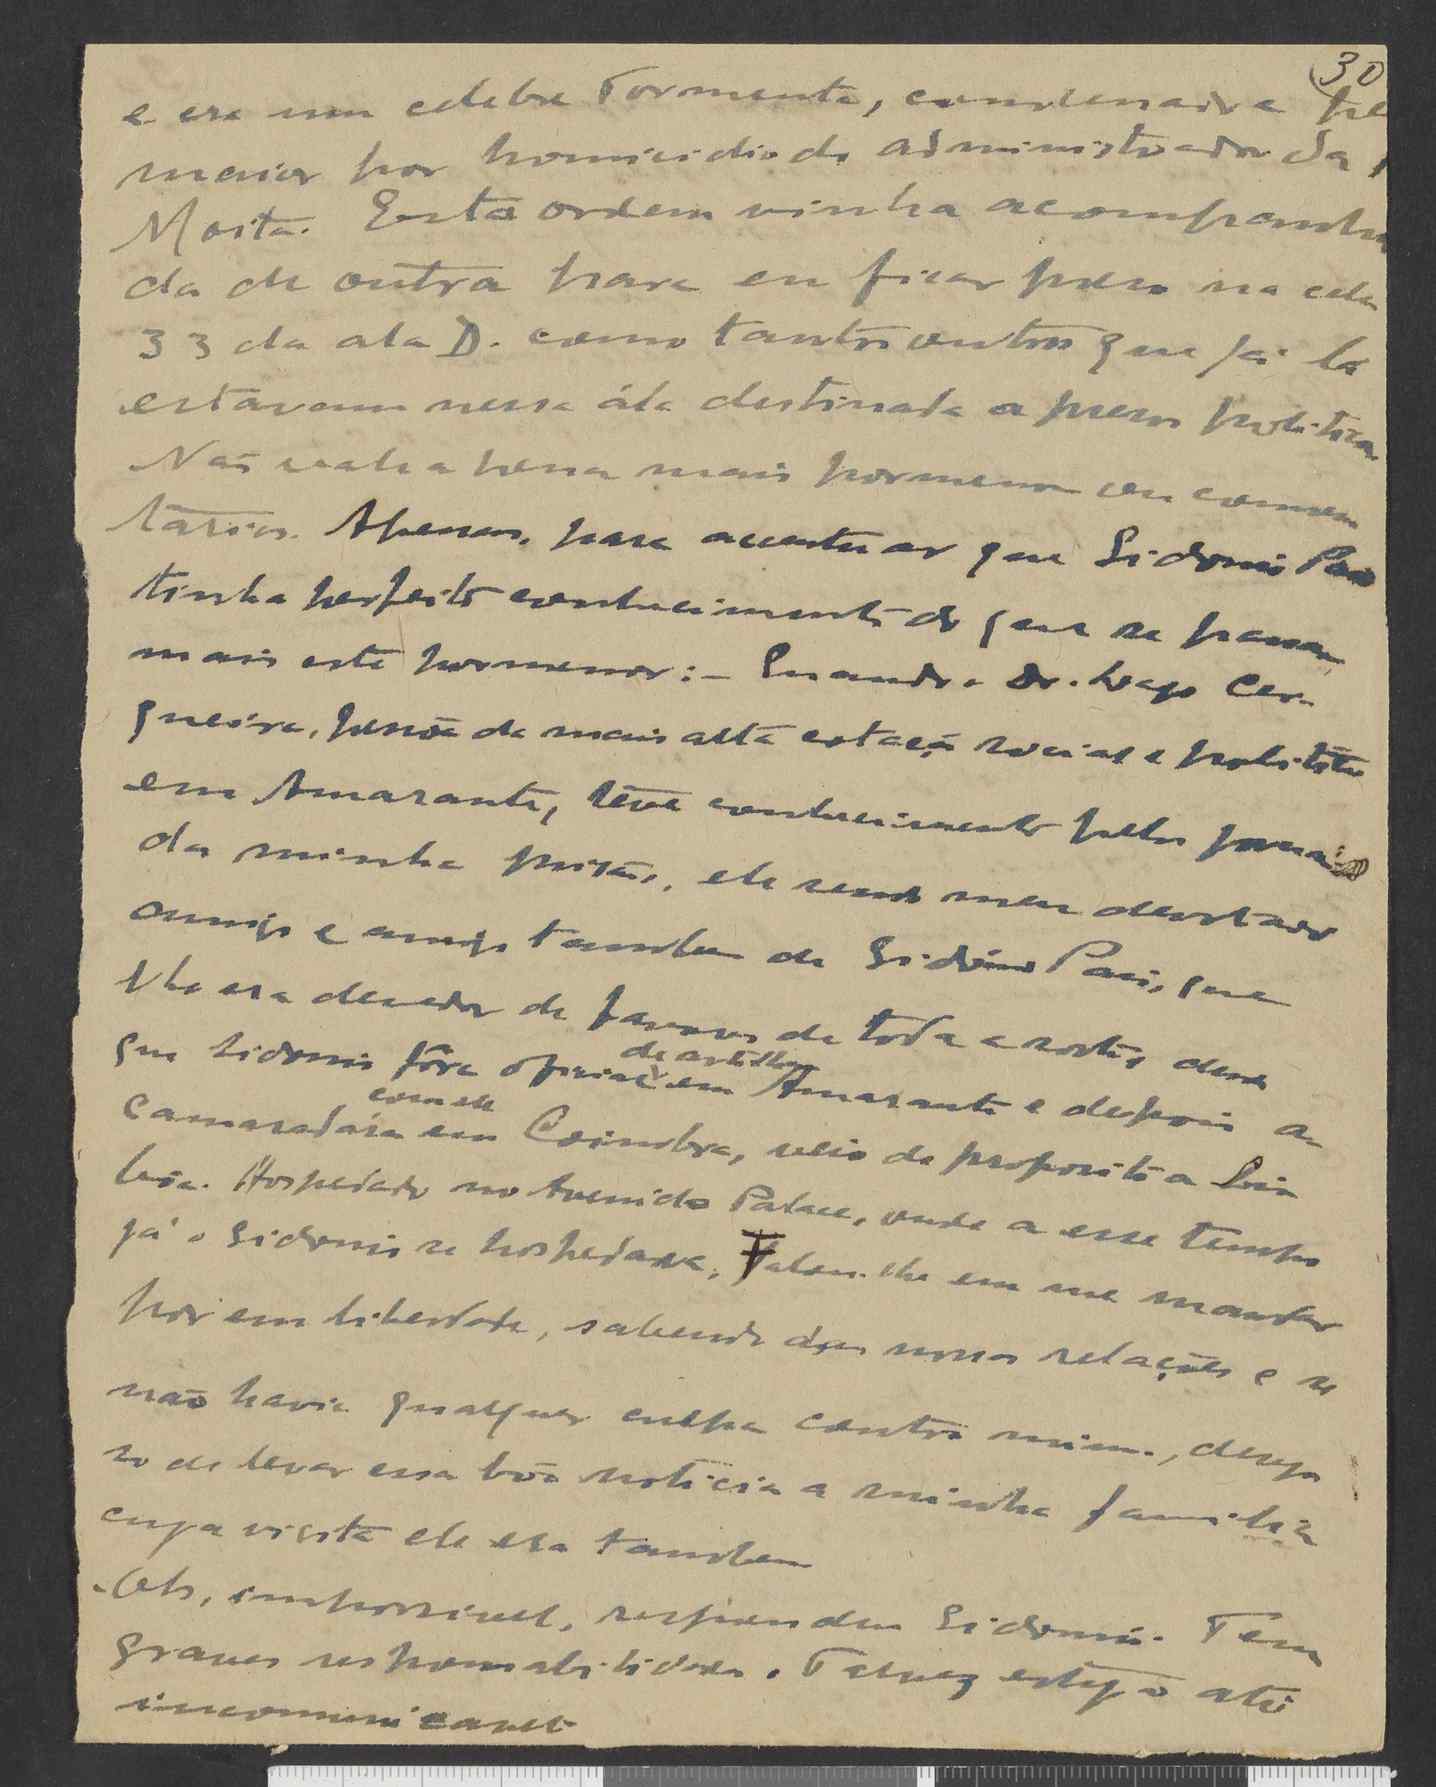 30
e era um celebre Tormenta, condenado a
maior por homicidio do administrador da
Moita. Esta ordem vinha acompanha
da de outra para eu ficar preso na cela
33 da ala D. como tantos outros que já lá
estavam nessa ála destinada a presos politicos
Não valha a pena mais pormenor ou comen
tarios. Apenas, para acentuar que Sidonio Pais
tinha perfeito conhecimento do que se passa
mais este pormenor: - Quando o Dr. Lago Cer
queira, pessoa da mais alta estação social e politica
em Amarante, teve conhecimento pelos
da minha prisão, ele sendo meu devotado
amigo e amigo tambem de Sidónio Pais, que
lhe era devedor de favores de toda a sorte, desde
que Sidonio fôra oficial de artilha em Amarante e depois a
camaradára com ele em Coimbra, veio de proposito a Lis
boa. Hospedado no Avenida Palace, onde a esse tempo
já o Sidonio se hospedava, Falou-lhe em me mandar
pôr em liberdade, sabendo das nossas relações e se
não havia qualquer culpa contra mim, desejo
so de levar essa bôa noticia a minha familia
cuja visita ele era tambem
- Oh, impossivel, respondeu Sidonio. Tem
graves responsabilidades. Talvez esteja até
incomunicavel